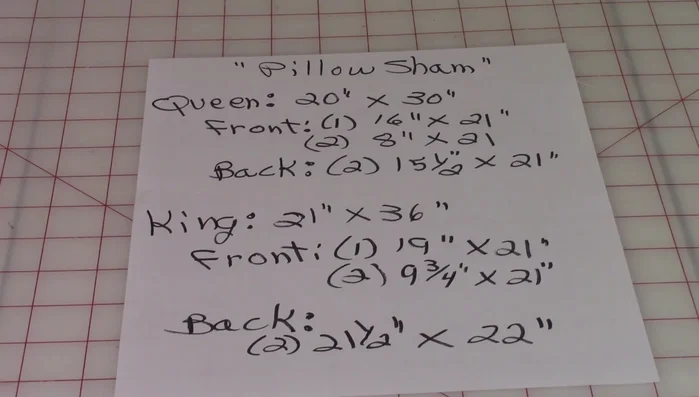 "Pillow Sham"
Queen: 20" x 30"
Front: (1) 16" x 21"
(2) 8" x 21
Back: (2) 15 1/2" x 21"
King: 21" x 36"
Front: (1) 19" x 21"
(2) 9 3/4" x 21"
Back:
(2) 21 1/2" x 22"